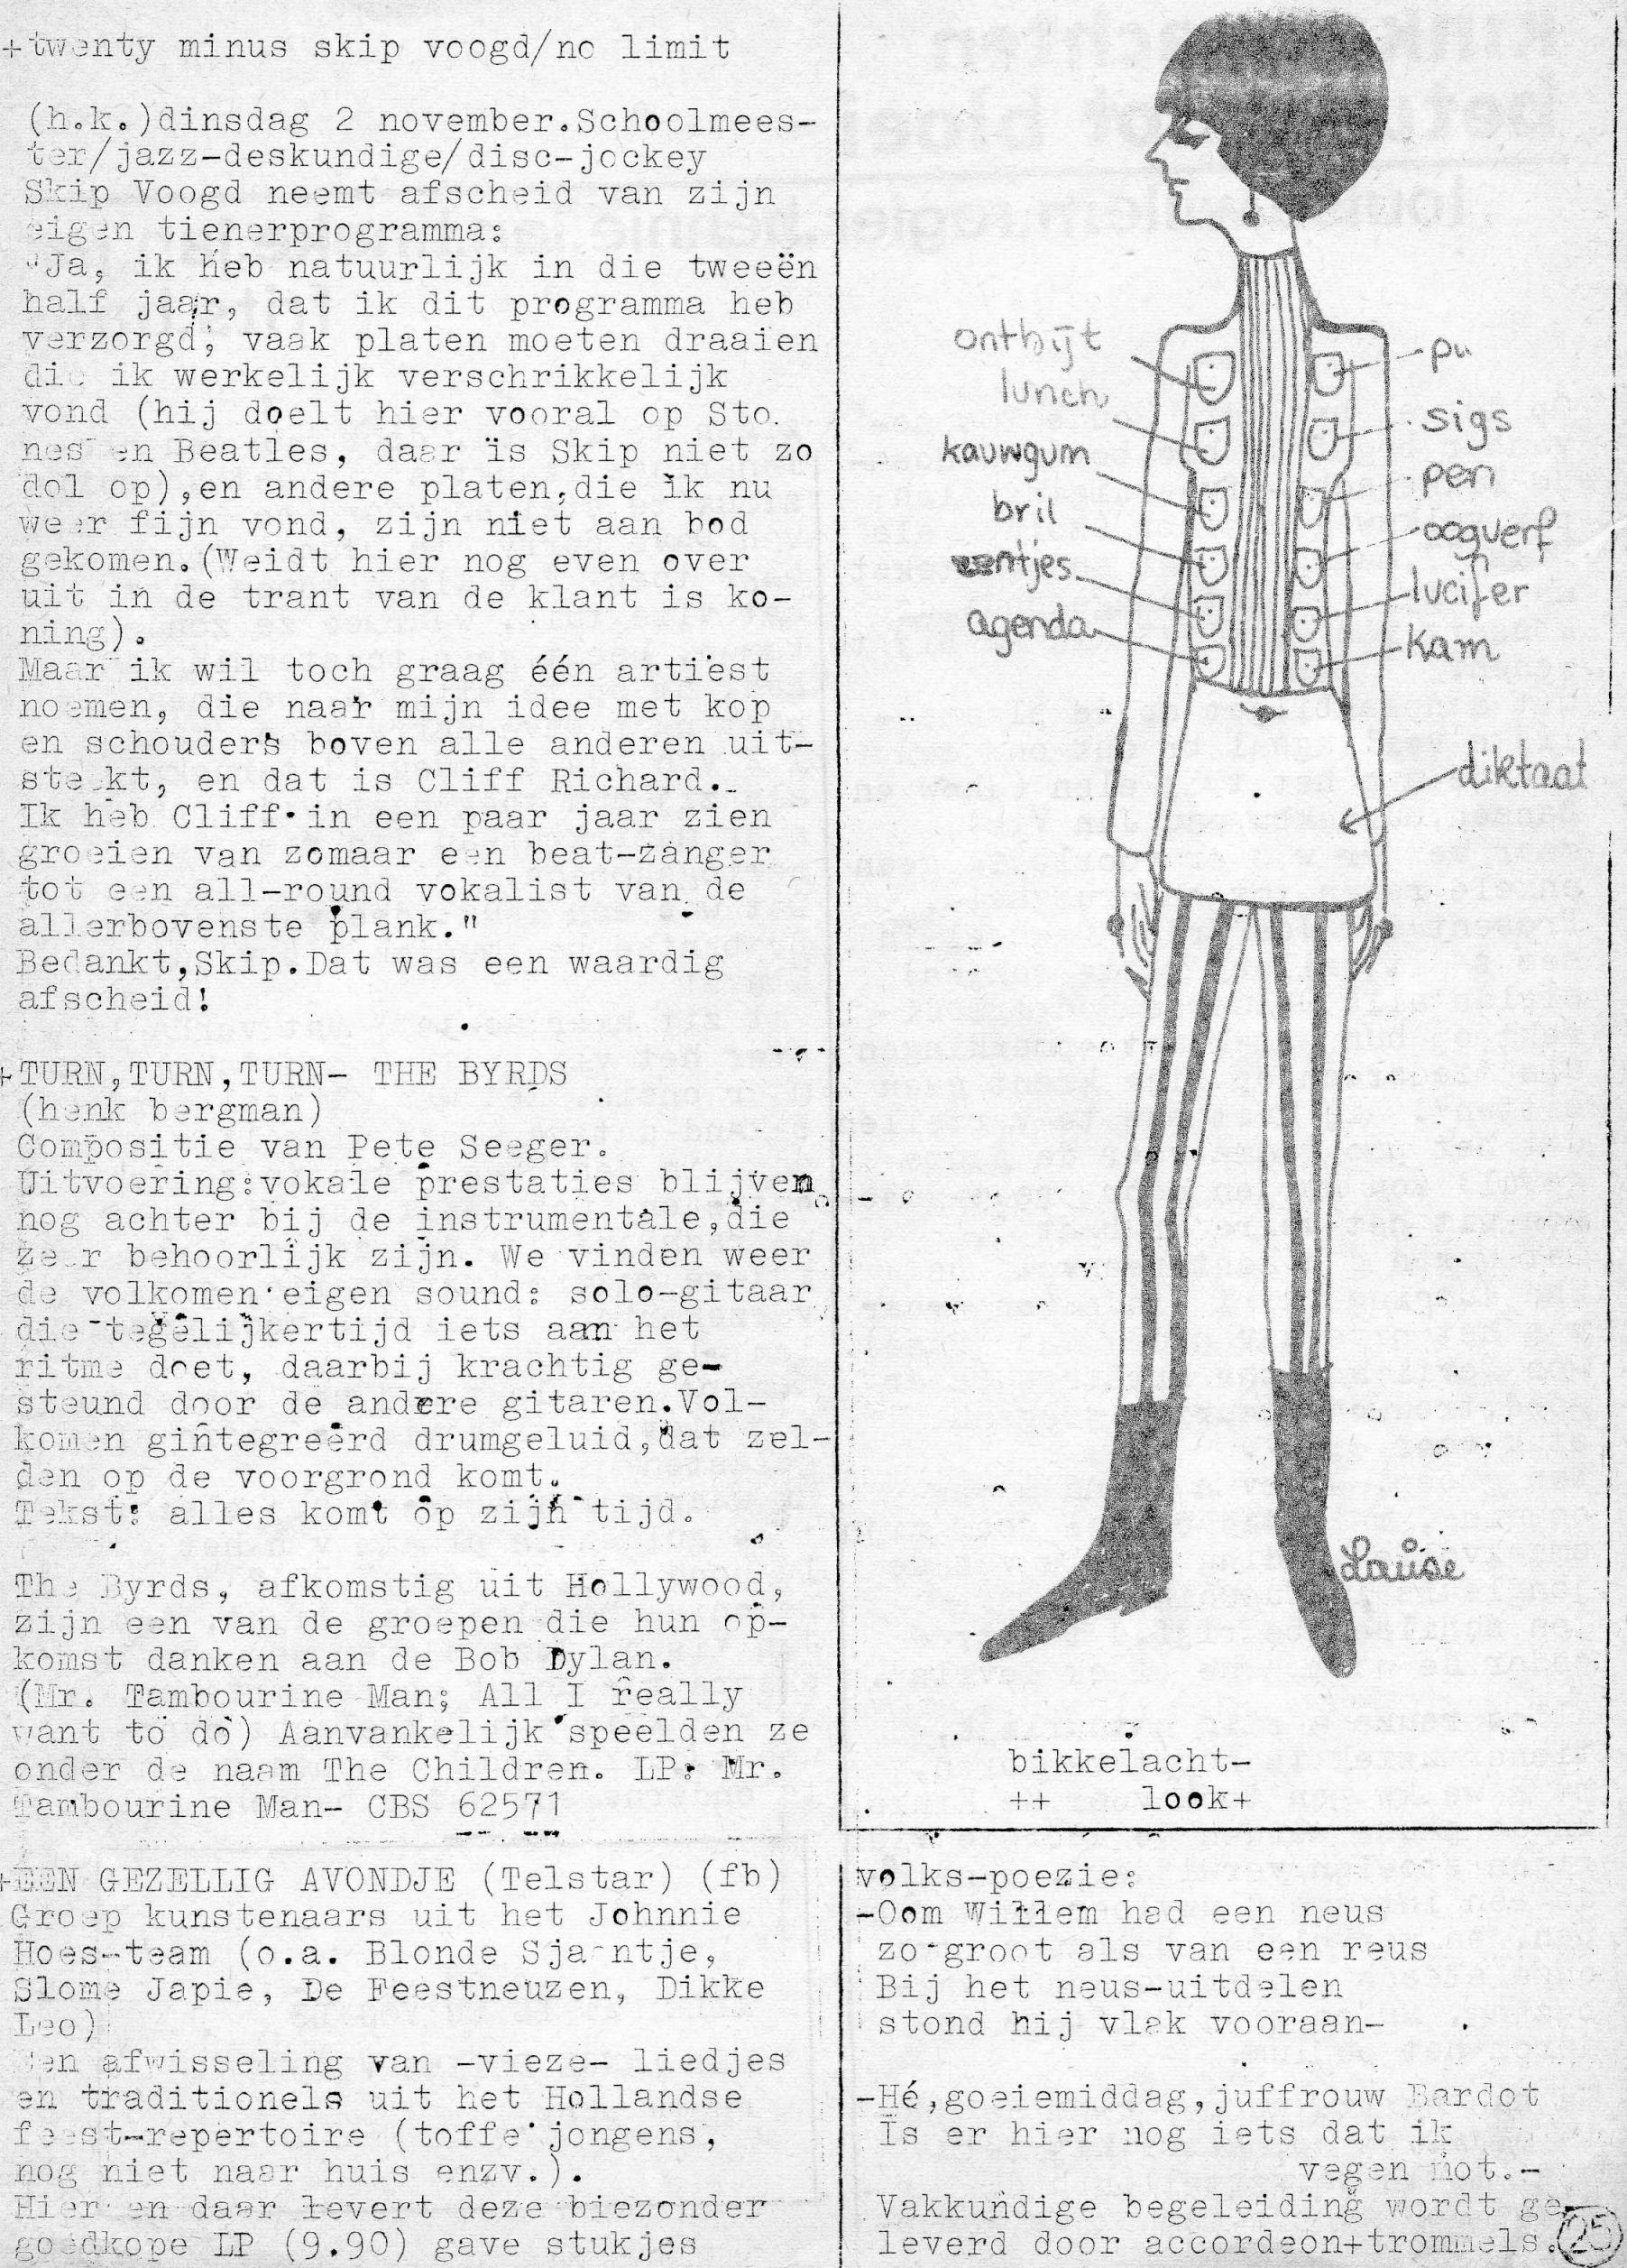 +twenty minus skip voogd/no limit
(h.k.)dinsdag 2 november.Schoolmees-
ter/jazz-deskundige/disc-jockey
Skip Voogd neemt afscheid van zijn
eigen tienerprogramma:
"Ja, ik heb natuurlijk in die tweeën
half jaar, dat ik dit programma heb
verzorgd, vaak platen moeten draaien
die ik werkelijk verschrikkelijk
vond (hij doelt hier vooral op Sto
nes en Beatles, daar is Skip niet zo
dol op),en andere platen,die ik nu
weer fijn vond, zijn niet aan bod
gekomen.(Weidt hier nog even over
uit in de trant van de klant is ko-
ning).
Maar ik wil toch graag één artiest
noemen, die naar mijn idee met kop
en schouders boven alle anderen uit-
steekt, en dat is Cliff Richard.
Ik heb Cliff in een paar jaar zien
groeien van zomaar een beat-zanger
tot een all-round vokalist van de
allerbovenste plank."
Bedankt,Skip.Dat was een waardig
afscheid!
+TURN,TURN,TURN- THE BYRDS
(henk bergman)
Compositie van Pete Seeger.
Uitvoering:vokale prestaties blijven
nog achter bij de instrumentale,die
zeer behoorlijk zijn. We vinden weer
de volkomen eigen sound: solo-gitaar
die tegelijkertijd iets aan het
ritme doet, daarbij krachtig ge-
steund door de andere gitaren.Vol-
komen gintegreerd drumgeluid,dat zel-
den op de voorgrond komt.
Tekst: alles komt op zijn tijd.
The Byrds, afkomstig uit Hollywood,
zijn een van de groepen die hun op-
komst danken aan de Bob Dylan.
(Mr. Tambourine Man; All I really
want to do) Aanvankelijk speelden ze
onder de naam The Children. LP: Mr.
Tambourine Man- CBS 62571
+EEN GEZELLIG AVONDJE (Telstar) (fb)
Groep kunstenaars uit het Johnnie
Hoes-team (o.a. Blonde Sjaantje,
Slome Japie, De Feestneuzen, Dikke
Leo)
Een afwisseling van -vieze- liedjes
en traditionels uit het Hollandse
feest-repertoire (toffe jongens,
nog niet naar huis enzv.).
Hier en daar levert deze biezonder
goedkope LP (9.90) gave stukjes
ontbijt
lunch
kauwgum
bril
agenda
pu
sigs
pen
oogverf
lucifer
kam
diktaat
Louise
bikkelacht-
++ look+
volks-poezie:
-Oom Willem had een neus
zo groot als van een reus
Bij het neus-uitdelen
stond hij vlak vooraan-
-Hé,goeiemiddag,juffrouw Bardot
Is er hier nog iets dat ik
vegen mot.-
Vakkundige begeleiding wordt ge-
leverd door accordeon+trommels.
25